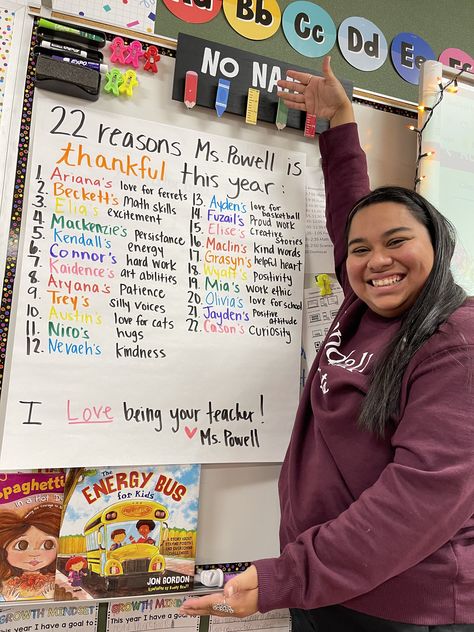 Bb
Cc
Dd
Ee
NO NAM
EXPO
22 reasons Ms. Powell is
thankful this year:
1. Ariana's love for ferrets
2. Beckett's Math skills
3. Elia's excitement
4. Mackenzie's persistance
5. Kendall's energy
6. Connor's hard work
7. Kaidence's art abilities
8. Aryana's Patience
9. Trey's Silly voices
10. Austin's love for cats
11. Nico's hugs
12. Nevaeh's kindness
13. Ayden's love for basketball
14. Fuzail's Proud work
15. Elise's Creative stories
16. Maclin's kind words
17. Grasyn's helpful heart
18. Wyatt's Positivity
19. Mia's work ethic
20. Olivia's love for school
21. Jayden's Positive attitude
22. Cason's Curiosity
I Love being your teacher!
Ms. Powell
Spaghetti
in a Hot D
The
ENERGY BUS
for KiDS
A STORY ABOUT
STAYING POSITIVE
AND OVERCOMING
CHALLENGES
JON GORDON
GROWTH MINDSET
GROWTH MINDSET
This year I have a goal to
This year I have a goal to